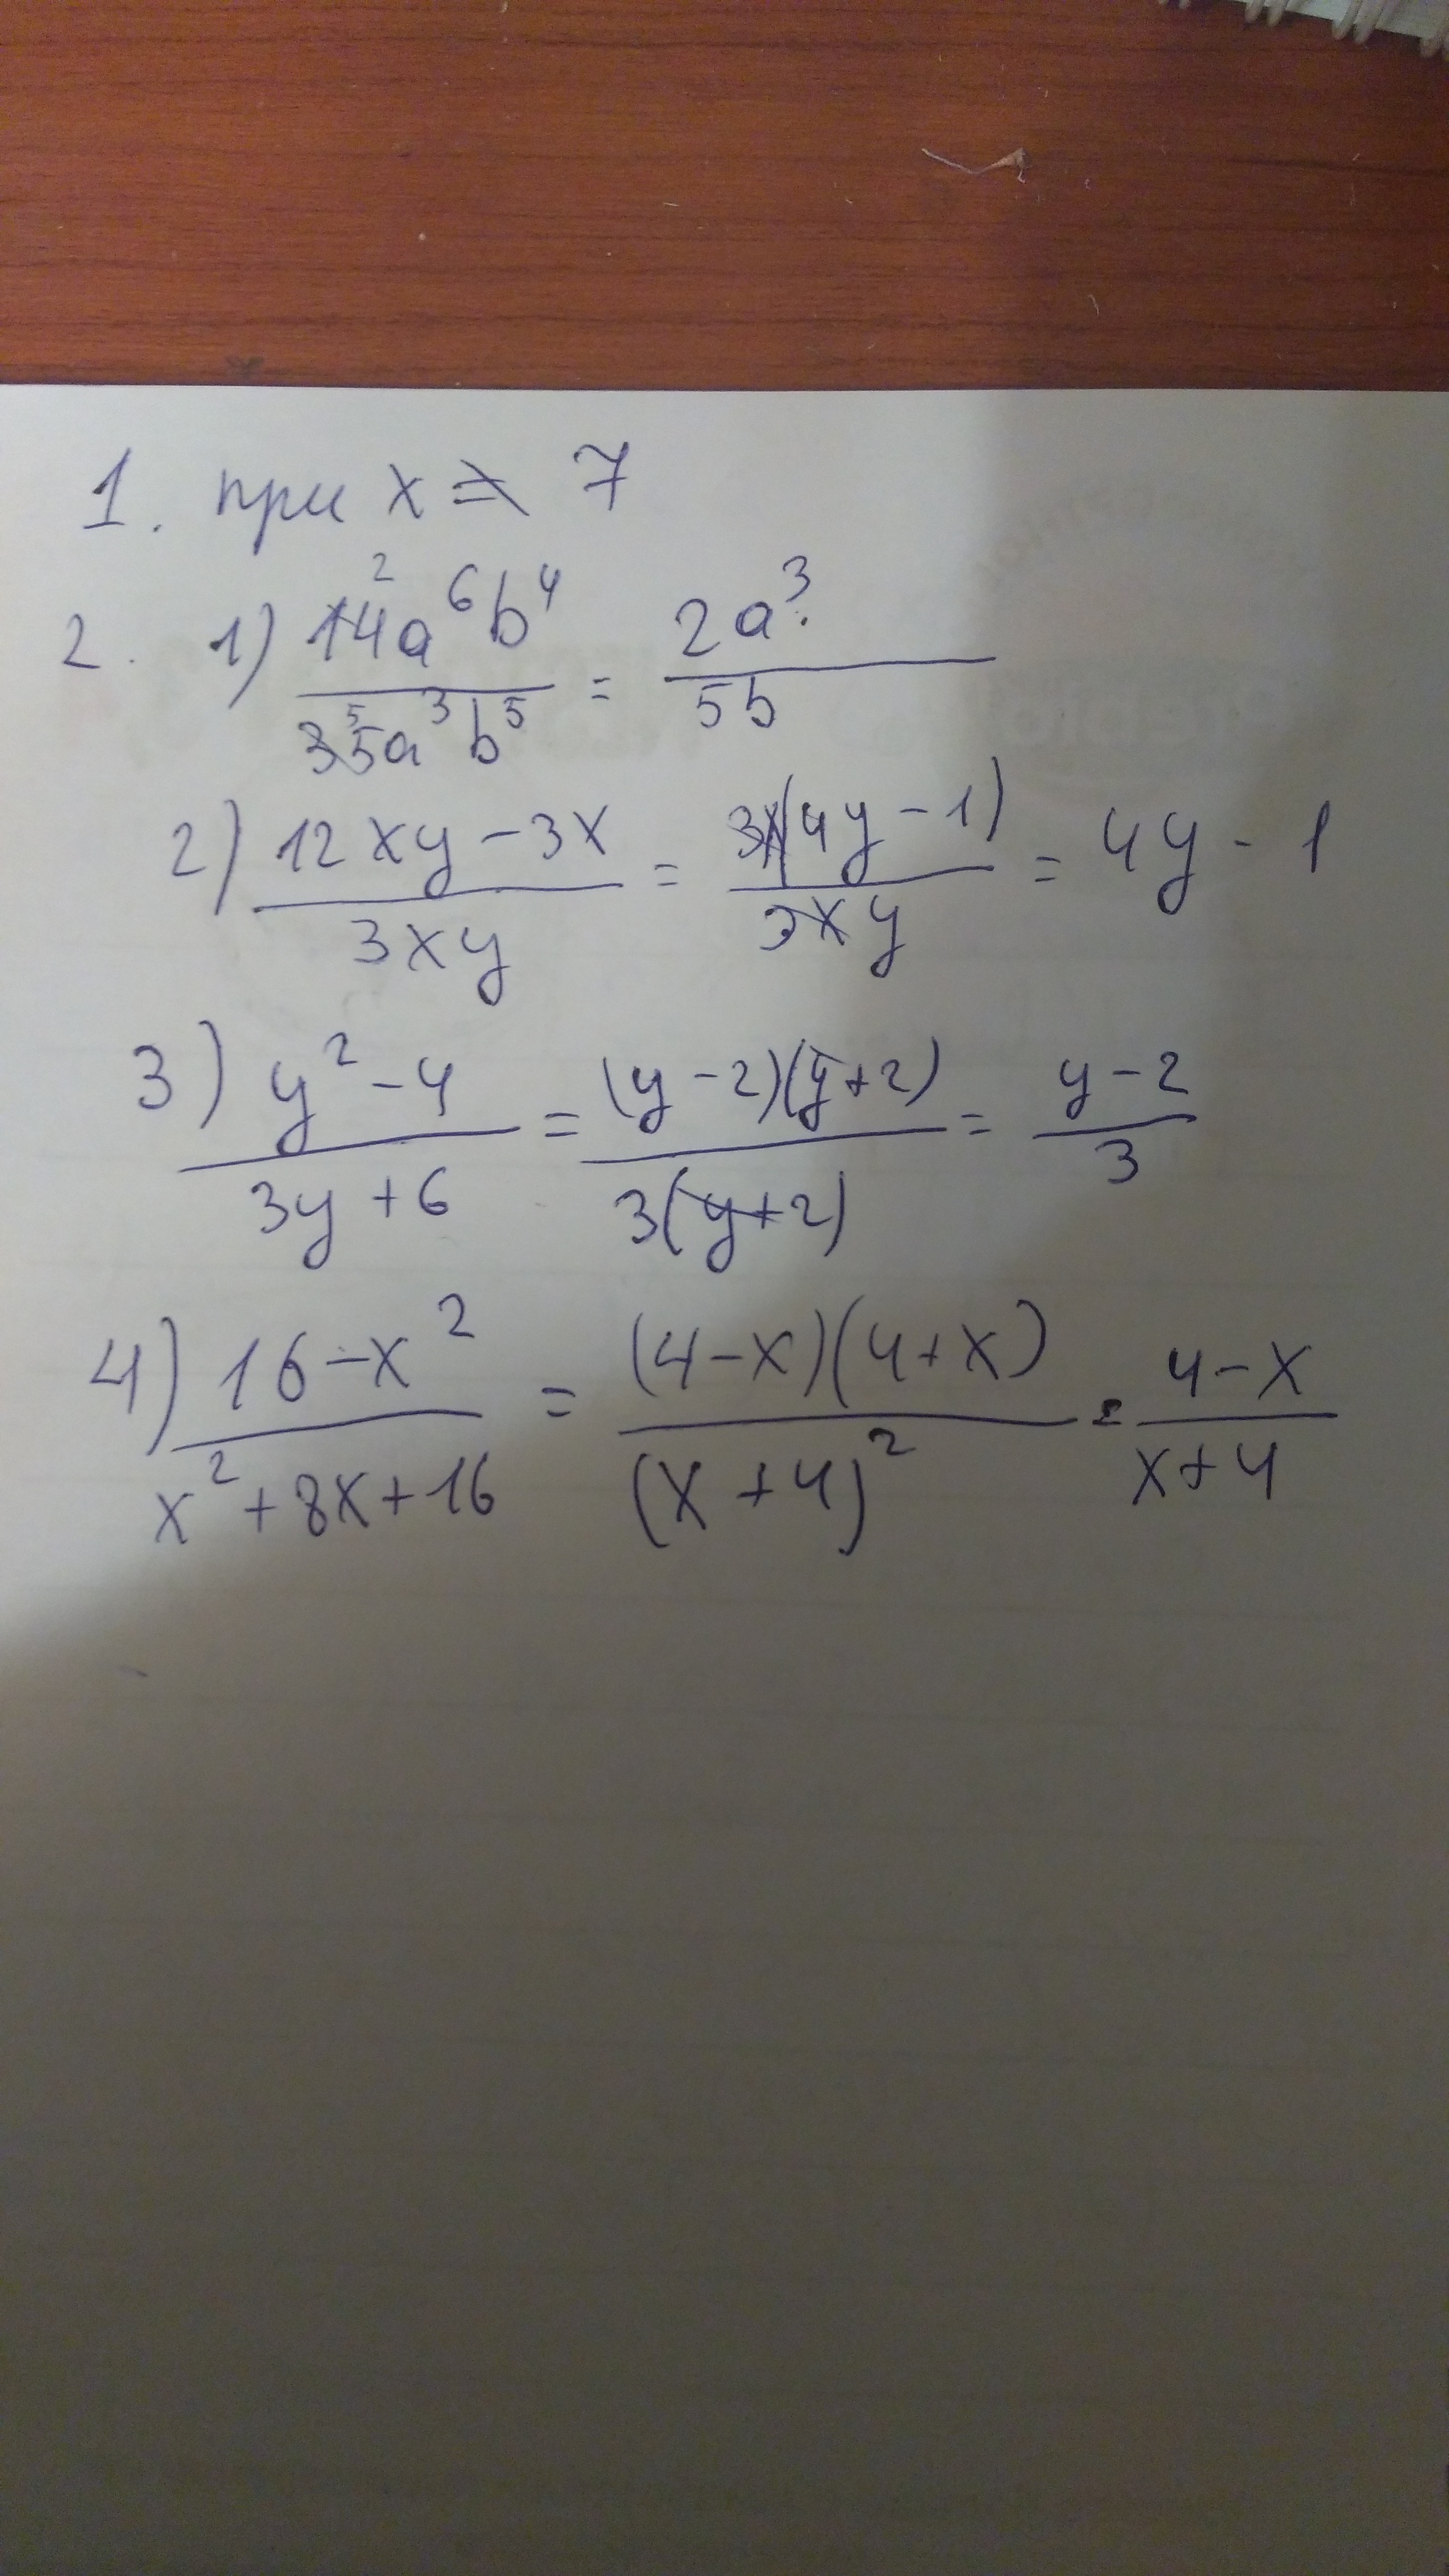 1. при x ≠ 7
2. 1) 14²a⁶b⁴ / 35⁵a³b⁵ = 2a³ / 5b
2) (12xy - 3x) / 3xy = 3x(4y - 1) / 3xy = 4y - 1
3) (y² - 4) / (3y + 6) = (y - 2)(y + 2) / 3(y + 2) = (y - 2) / 3
4) (16 - x²) / (x² + 8x + 16) = (4 - x)(4 + x) / (x + 4)² = (4 - x) / (x + 4)